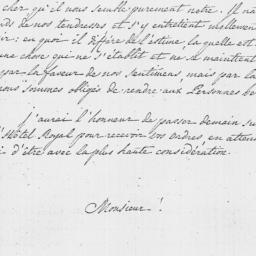 cher qu'il nous semble purement notre. Il naî
de nos tendresses et s'y entretient mollement
ir: en quoi il diffère de l'estime, la quelle est
une chose qui ne s'établit et ne se maintient
par la faveur de nos sentimens, mais par la
nous sommes obligés de rendre aux Personnes de
j'aurai l'honneur de passer demain su
l'Hôtel Royal pour recevoir vos ordres, en atten
d'être avec la plus haute considération.
Monsieur!